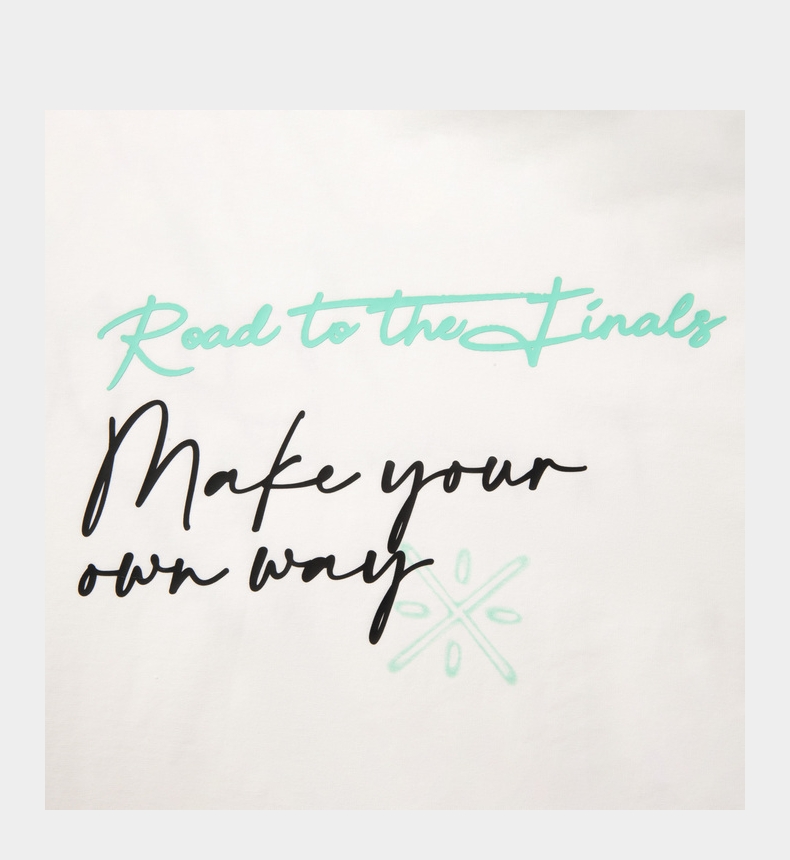 Road to the Finals
Make your
own way